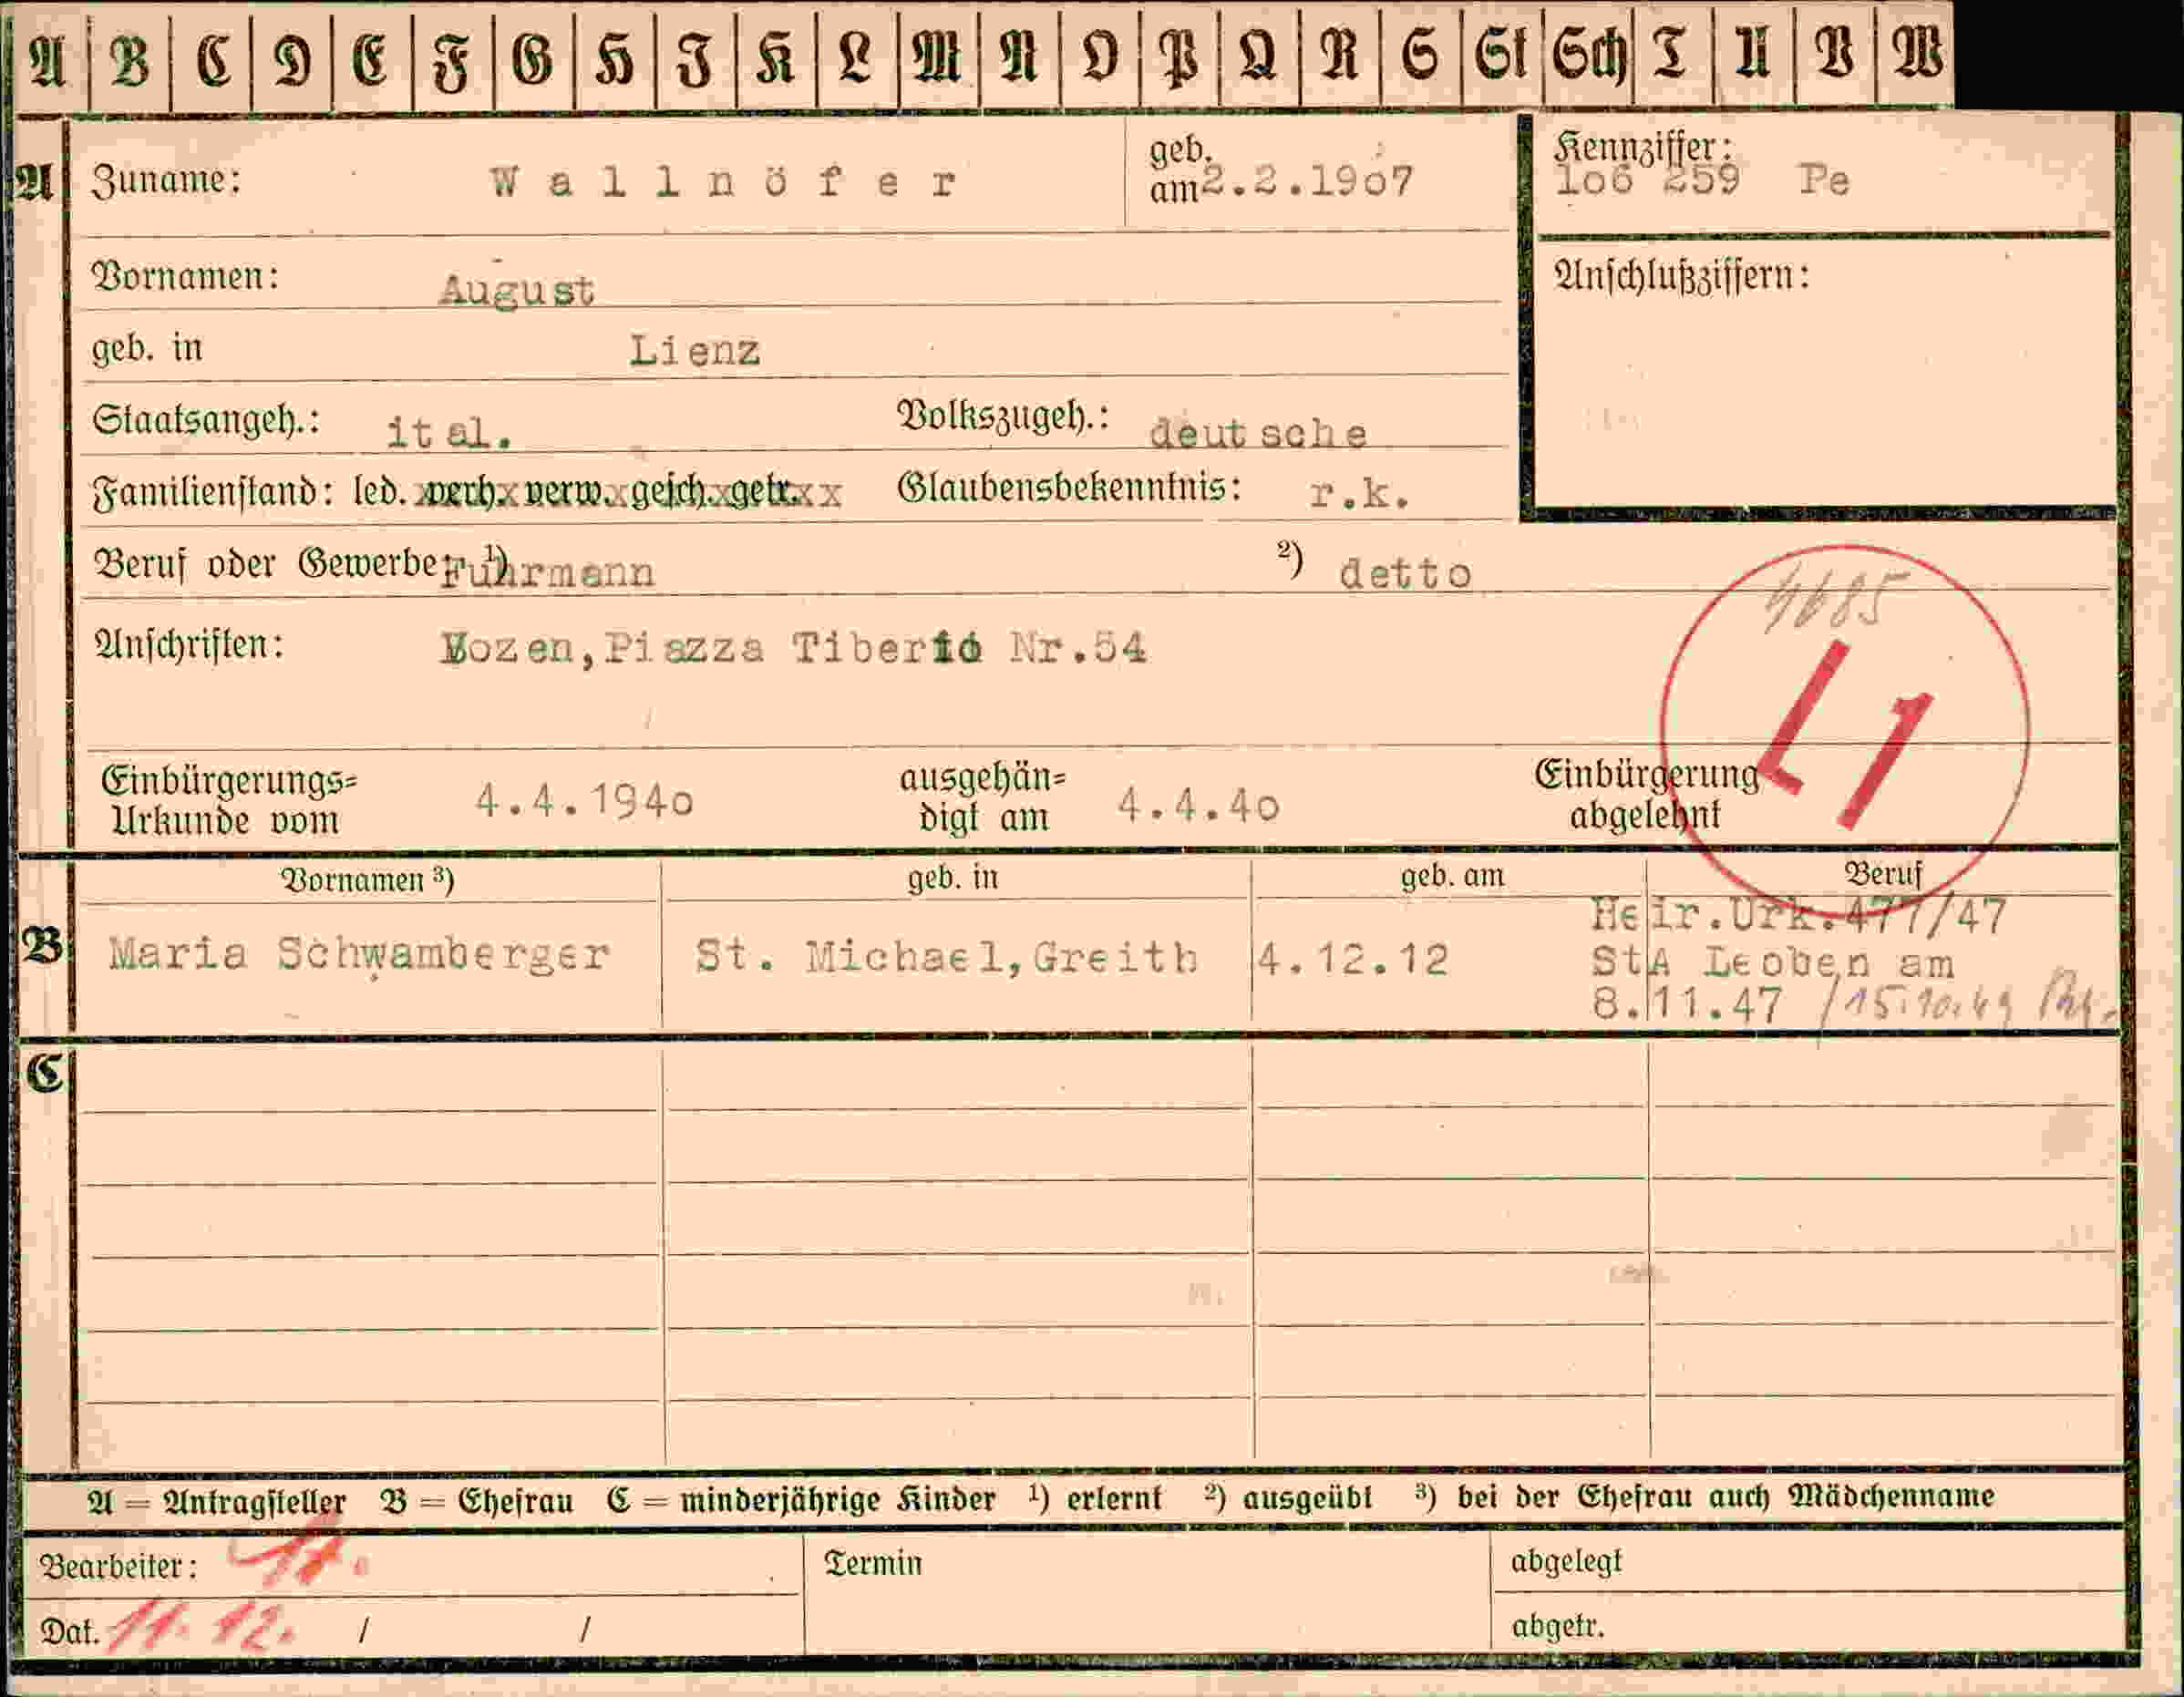 A B C D E F G H I K L M N O P Q R S St Sch T U V W
A Zuname: Wallnöfer geb. am 2.2.19o7 Kennziffer: 1o6 259 Pe
Vornamen: August Anschlußziffern:
geb. in Lienz
Staatsangeh.: ital. Volkszugeh.: deutsche
Familienstand: led. verh. verw. gesch. getr. Glaubensbekenntnis: r.k.
Beruf oder Gewerbe: 1) Fuhrmann 2) detto
4685
Anschriften: Bozen, Piazza Tiberio Nr.54
L1
Einbürgerungs= Urkunde vom 4.4.194o ausgehän= digt am 4.4.4o Einbürgerung abgelehnt
Vornamen 3) geb. in geb. am Beruf
B Maria Schwamberger St. Michael, Greith 4.12.12 Heir.Urk.477/47
StA Leoben am
8.11.47 /15.10.49
C
A = Antragsteller B = Ehefrau C = minderjährige Kinder 1) erlernt 2) ausgeübt 3) bei der Ehefrau auch Mädchenname
Bearbeiter: Termin abgelegt
Dat. 11. 12. / / abgetr.